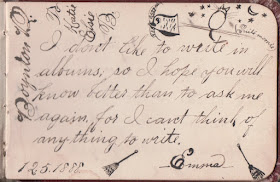 I don't like to write in
albums, so I hope you will
know better than to ask me
again, for I can't think of
anything to write.
Emma
1.25.1888.